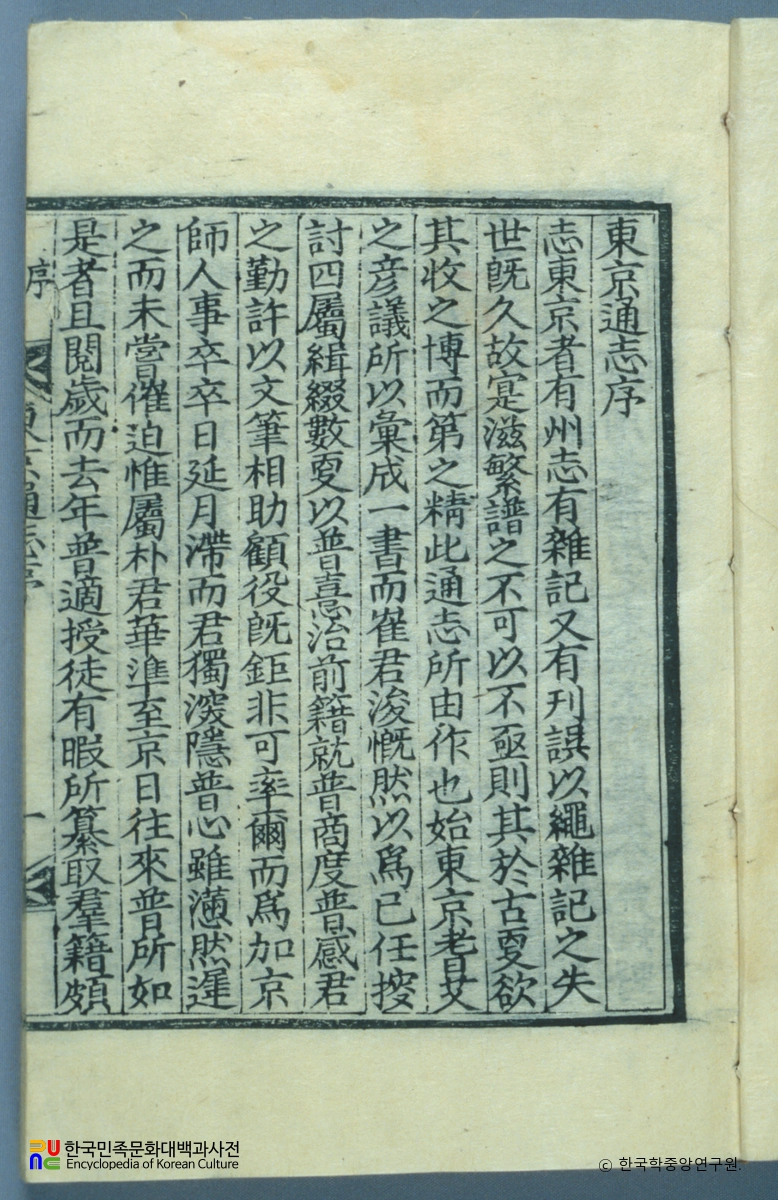 東京通志序
志東京者有州志有雜記又有刊誤以繩雜記之失
世既久故寔滋繁譜之不可以不亟則其於古叓欲
其收之博而第之精此通志所由作也始東京耆艾
之彦議所以彙成一書而崔君浚慨然以爲已任搜
討四屬緝綴數叓以普憙治前籍就普商度普感君
之勤許以文筆相助顧役既鉅非可率爾而爲加京
師人事卒卒日延月滯而君獨湥隱普心雖懣然遲
之而未嘗催迫惟屬朴君華準至京日往來普所如
是者且閱歲而去年普適授徒有暇所纂取羣籍頗
序
東京通志序
一
한국민족문화대백과사전
Encyclopedia of Korean Culture
© 한국학중앙연구원.